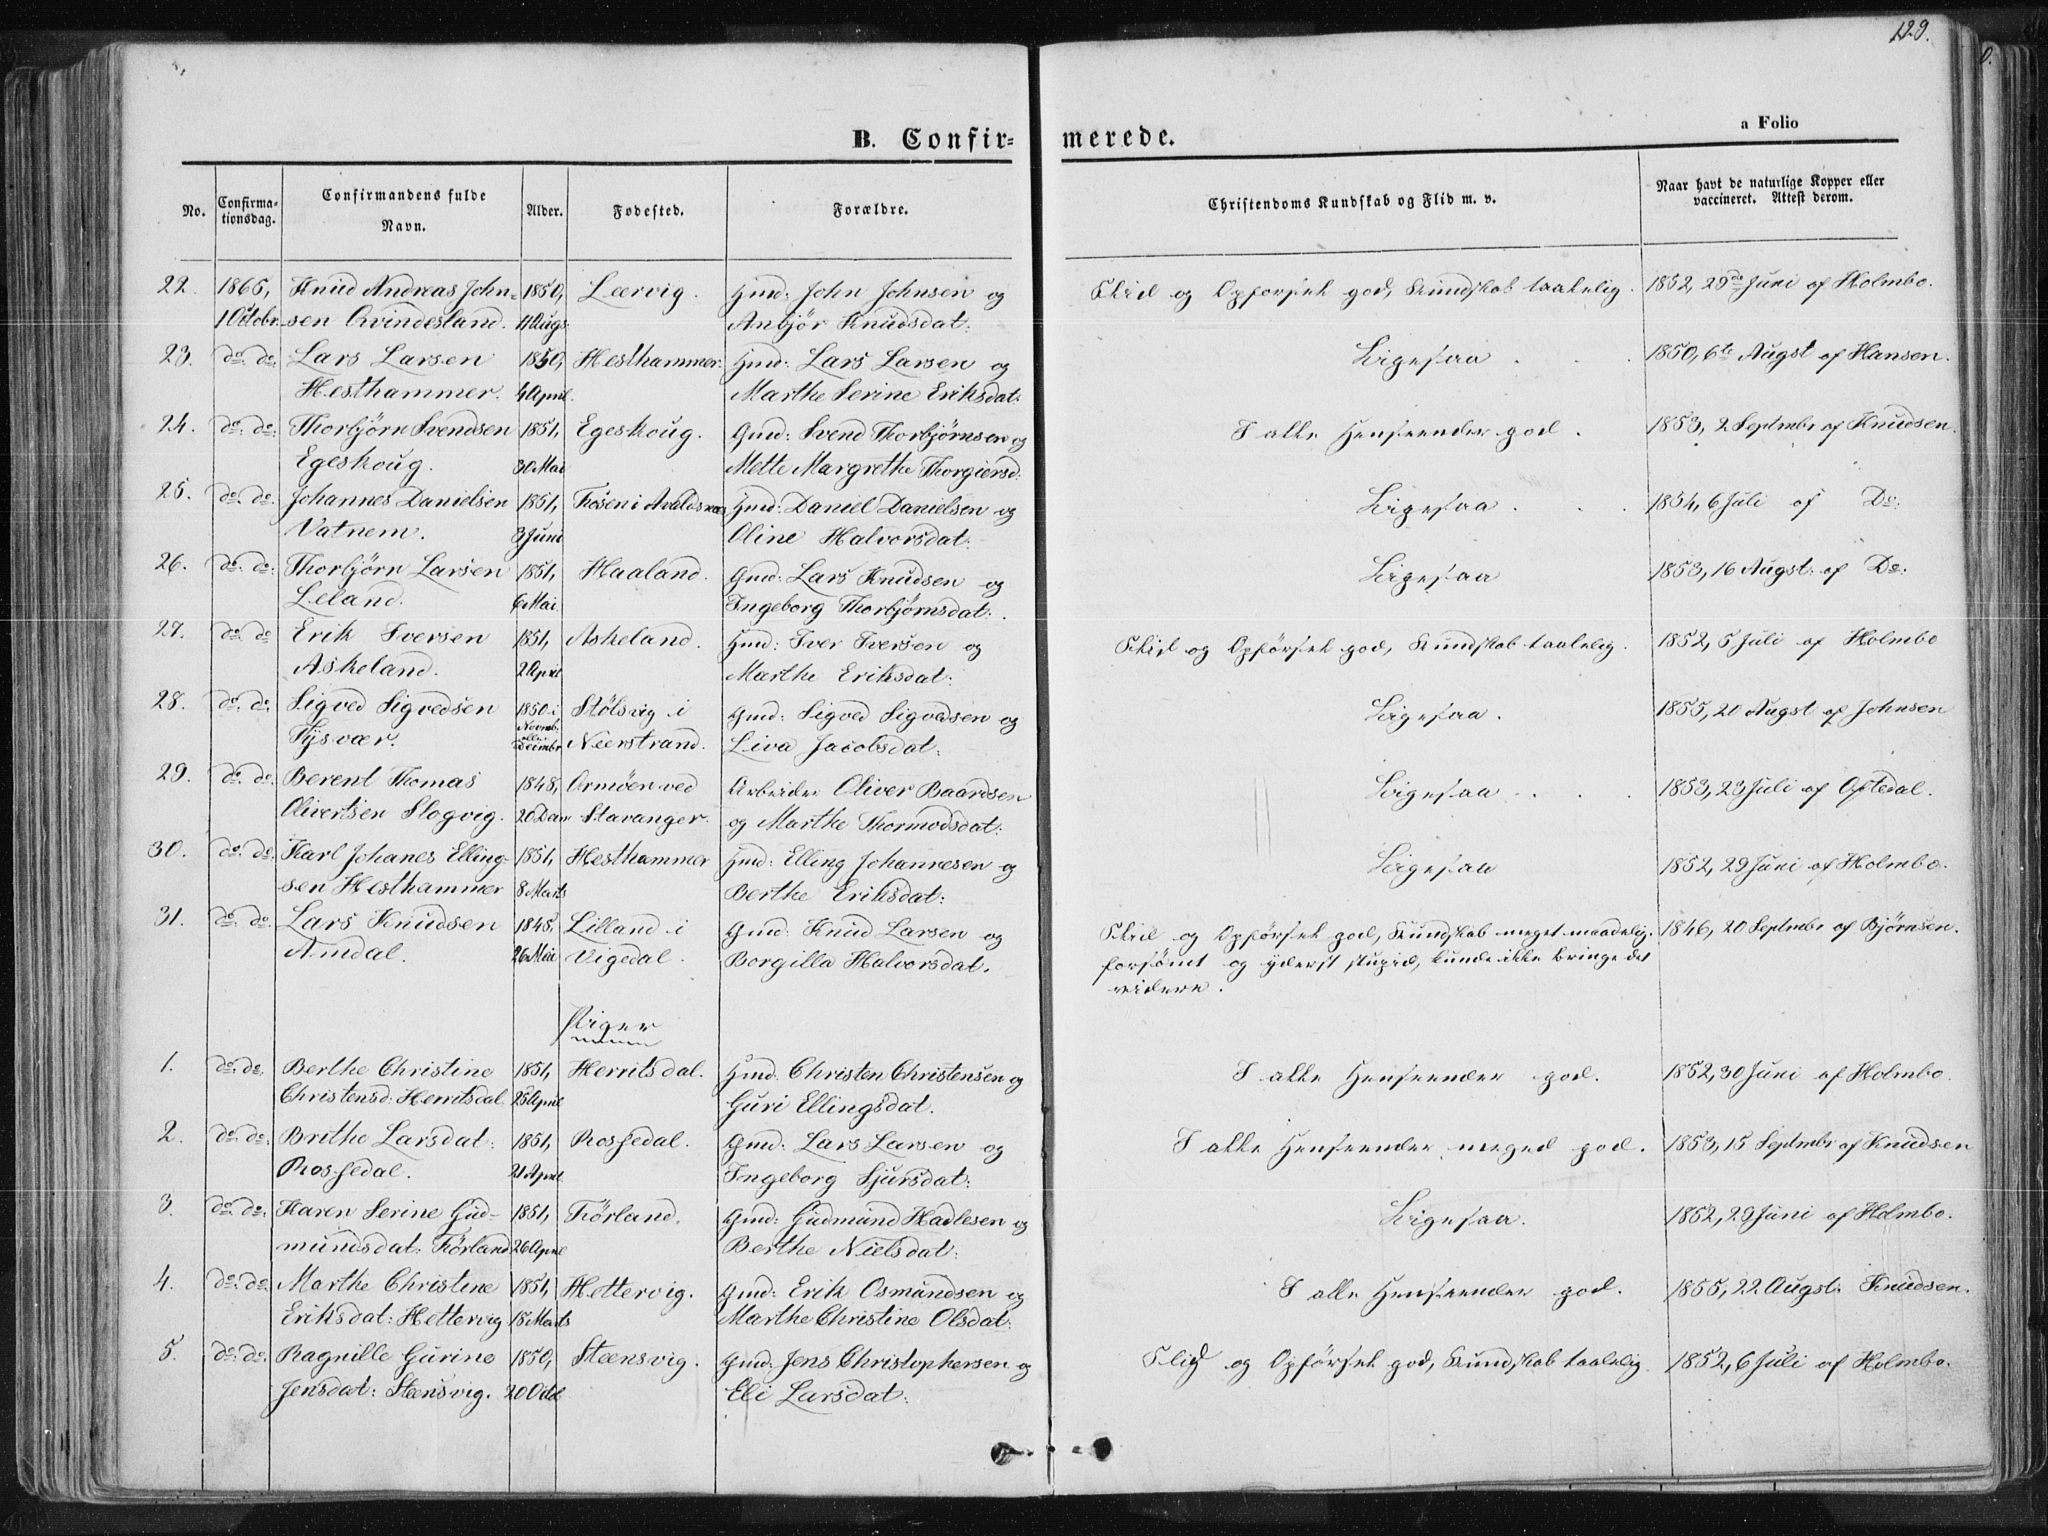 129.
B. Confir= merede.
a Folio
No.
Confirma-
tionsdag.
Confirmandens fulde
Navn.
Alder.
Fødested.
Forældre.
Christendoms Kundskab og Flid m. v.
Naar havt de naturlige Kopper eller
vaccineret. Attest derom.
22. 1865, Knud Andreas John= 1850, Leervig. Gmd: John Johnsen og Flid og Opførsel god, Kundskab taalelig. 1852, 29de Juni af Holmbo.
1 Octobr. sen Qvindesland. 11 Augs. Anbjör Knudsdat:
23. do: do: Lars Larsen 1850, Hesthammer. Gmd: Lars Larsen og Ligesaa . . 1850, 6te Augst af Hansen.
Hesthammer. 4 April. Marthe Serine Eriksdat:
24. do: do: Thorbjörn Svendsen 1851, Egeskoug. Gmd: Svend Thorbjörnsen og I alle Henseender god. 1853, 2 Septmbr af Knudsen.
Egeskoug. 30 Mai Mette Margrethe Thorgiersd:
25. do: do: Johannes Danielsen 1851, Fosen i Avaldsnæs Gmd: Daniel Danielsen og Ligesaa . . . 1854, 6 Juli af Do:
Vatnem. 3 Juni Oline Halvorsdat:
26. do: do: Thorbjörn Larsen 1851, Haaland. Gmd: Lars Knudsen og Ligesaa 1853, 16 Augst: af Do:
Leland. 6 Mai. Ingeborg Thorbjörnsdat:
27. do: do: Erik Iversen 1851, Askeland. Gmd: Iver Iversen og Flid og Opførsel god, Kundskab taalelig. 1852, 5 Juli af Holmbo
Askeland. 2 April Marthe Eriksdat:
28. do: do: Sigved Sigvedsen 1850 i Stölsvig i Gmd: Sigved Sigvedsen og Ligesaa. 1855, 20 Augst af Johnsen
Novmb.
eller
Tysvær. Decimbr Neerstrand. Liva Jacobsdat:
29. do: do: Berent Thomas 1848, Ormöen ved Arbeider Oliver Baardsen Ligesaa . . . 1853, 23 Juli af Oftedal.
Olivertsen Slogvig. 20 Dcm Stavanger. og Marthe Thormodsdat:
30. do: do: Karl Johanes Elling= 1851, Hesthammer Gmd: Elling Johannesen og Ligesaa 1852, 29 Juni af Holmbo.
sen Hesthammer 8 Marts Berthe Eriksdat:
31. do: do: Lars Knudsen 1845, Lilland i Gmd: Knud Larsen og Flid og Opførsel god, Kundskab meget maadelig. 1846, 20 Septmbr af Björnsen.
Amdal. 26 Mai Vigedal. Borgilla Halvorsdat. forsömt og yderst stupid, kunde ikke bringe det
videre.
Piger
1. do: do. Berthe Christine 1851, Herritsdal. Gmd. Christen Christensen og I alle Henseender god. 1852, 30 Juni af Holmbo.
Christensd: Herritsdal 25 April Guri Ellingsdat.
2. do: do: Brithe Larsdat: 1851, Rossedal. Gmd: Lars Larsen og I alle Henseender meged god. 1853, 15 Septmbr af Knudsen
Rossedal. 21 April Ingeborg Sjursdat:
3. do: do: Karen Serine Gud- 1851, Förland. Gmd: Gudmund Hadlesen og Ligesaa. 1852, 29 Juni af Holmbo.
mundsdat: Förland 26 April Berthe Nielsdat:
4. do: do: Marthe Christine 1851, Hettervig. Gmd: Erik Osmundsen og I alle Henseender god. 1855, 22 Augst: Knudsen.
Eriksdat: Hettervig 15 Marts Marthe Christine Olsdat:
5. do: do: Ragnille Gurine 1850, Steensvig. Gmd: Jens Christophersen og Flid og Opførsel god, Kundskab taalelig 1852, 6 Juli af Holmbo.
Jensdat: Steensvig. 20 Octb Eli Larsdat: